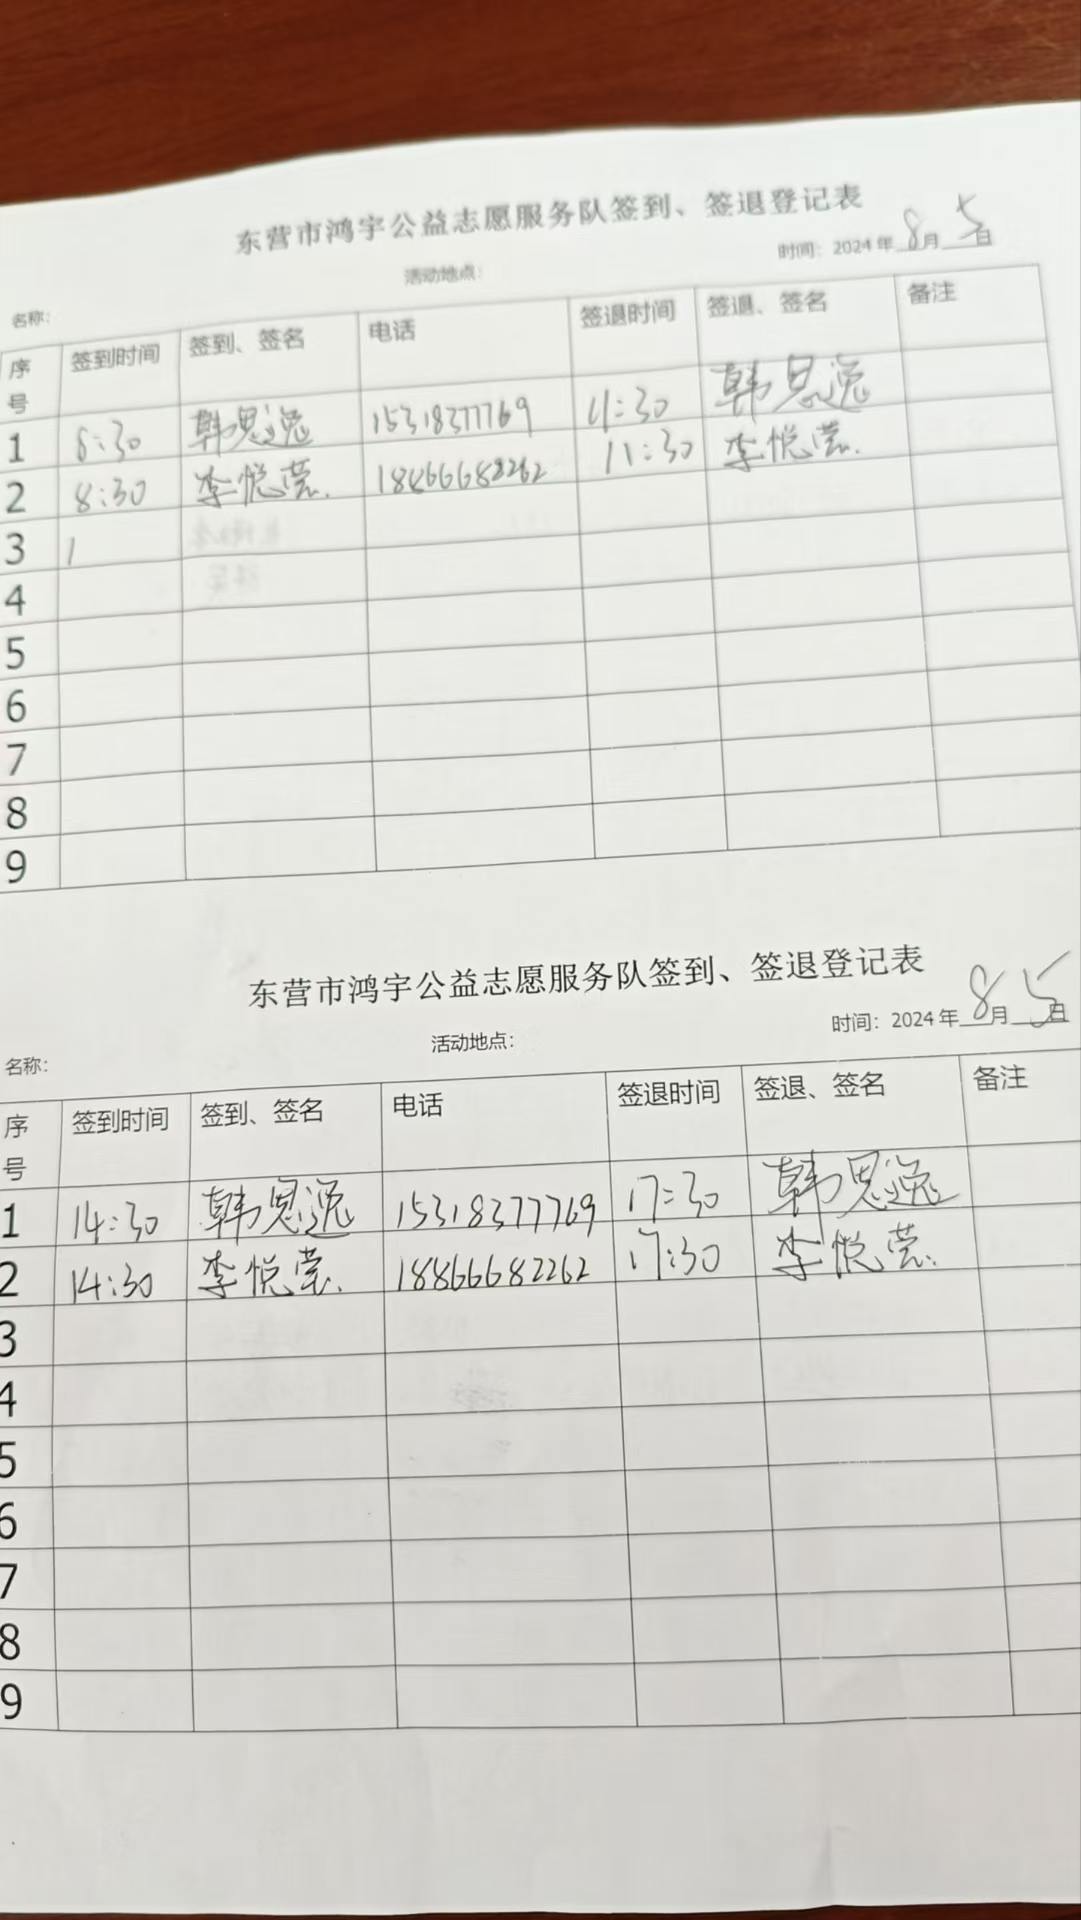 东营市鸿宇公益志愿服务队签到、签退登记表
时间：2024年8月5日
活动地点：
名称：
序号 签到时间 签到、签名 电话 签退时间 签退、签名 备注
1 8:30 韩思逸 15318377769 11:30 韩思逸
2 8:30 李悦莹. 18866682262 11:30 李悦莹.
3 1
4
5
6
7
8
9
东营市鸿宇公益志愿服务队签到、签退登记表
时间：2024年8月5日
活动地点：
名称：
序号 签到时间 签到、签名 电话 签退时间 签退、签名 备注
1 14:30 韩思逸 15318377769 17:30 韩思逸
2 14:30 李悦莹. 18866682262 17:30 李悦莹.
3
4
5
6
7
8
9